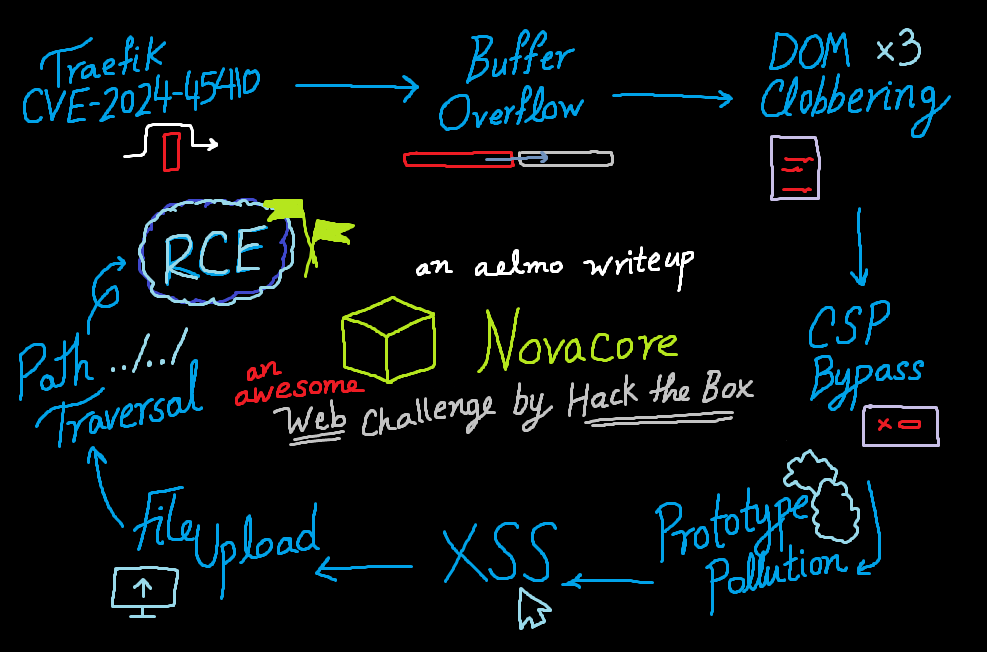 Traefik
CVE-2024-45410
Buffer
Overflow
DOM x3
Clobbering
CSP
Bypass
Prototype
Pollution
XSS
File Upload
Path ../../
Traversal
RCE
an aelmo writeup
Novacore
an
awesome
Web Challenge by Hack the Box